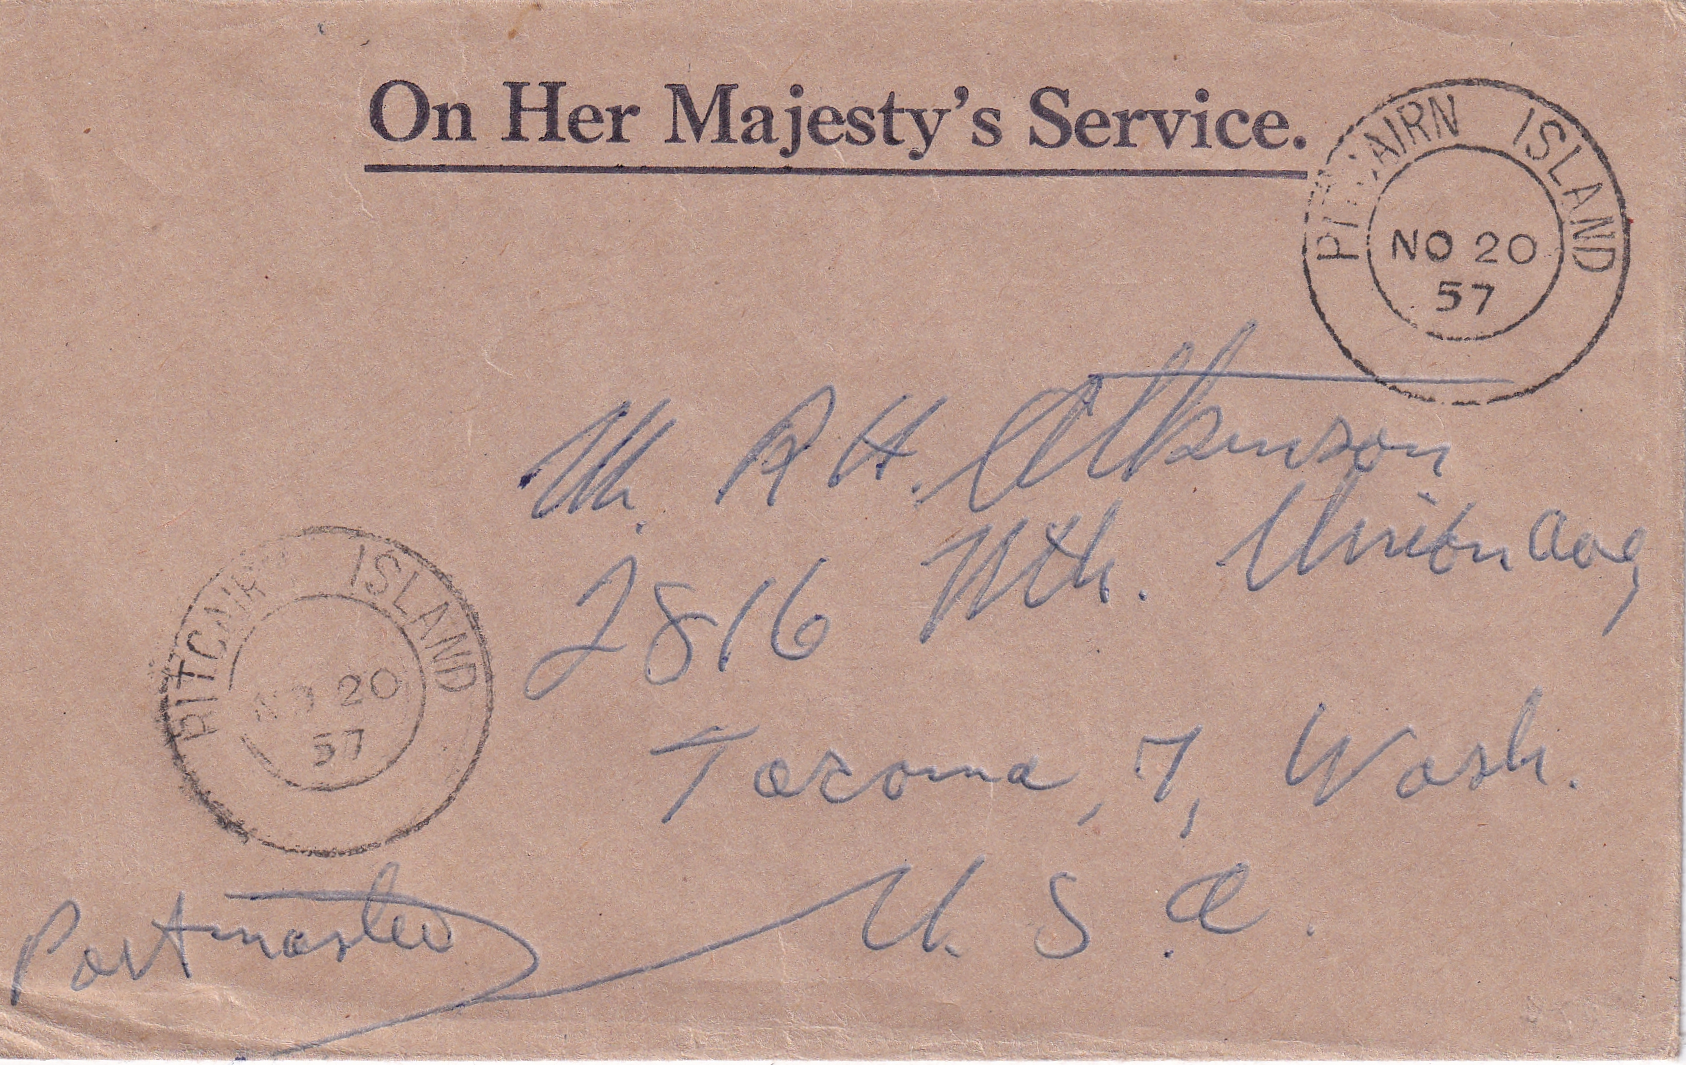 On Her Majesty's Service.
PITCAIRN ISLAND
NO 20
57
Mr. R H. Atkinson
2816 Nth. Union Ave,
Tacoma, 7, Wash.
U. S. A.
PITCAIRN ISLAND
NO 20
57
Postmaster